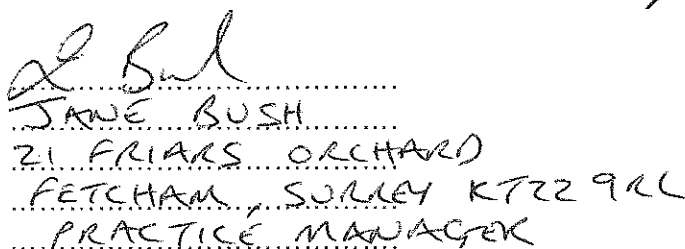 J Bush
JANE BUSH
21 FRIARS ORCHARD
FETCHAM, SURREY KT22 9RL
PRACTICE MANAGER